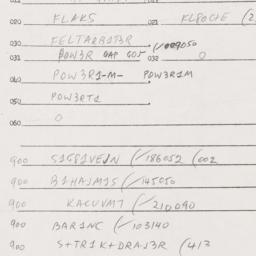 020 FLAKS 021 FL80CIE (2
030 FELTARBIT3R (/009050
031 POW3R GAP GO5 032 0
040 POW3R1-M- POW3R1M
050 POW3RT1
060 0
900 S1G81VEJN (/186052 (002
900 B1HAJM1S (/145050
900 KACUVM7 (/210090
900 BAR1NC (/103140
900 S+TR1K+DRAJ3R (413